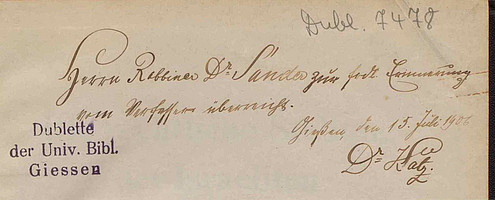 Dubl. 7478
Herrn Rabbiner Dr. Sander zur frdl. Erinnerung
vom Verfasser überreicht.
Gießen, den 15. Juli 1906
Dr. Katz.
Dublette
der Univ. Bibl.
Giessen